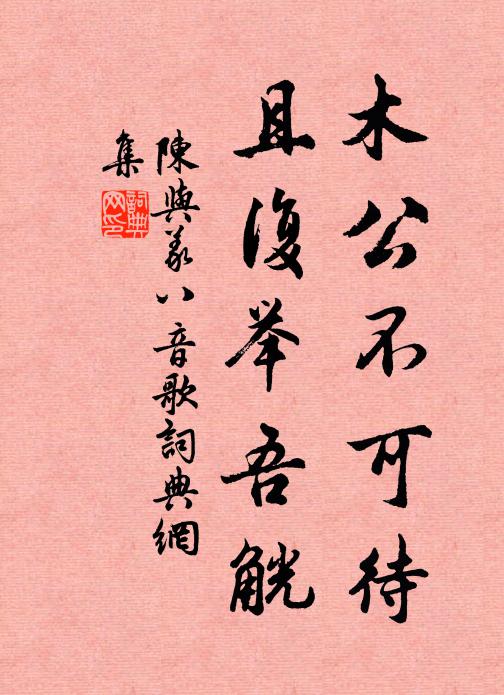 木公不可待
且復举吾觥
陳與義八音歌詞典網
集
詞典
网印